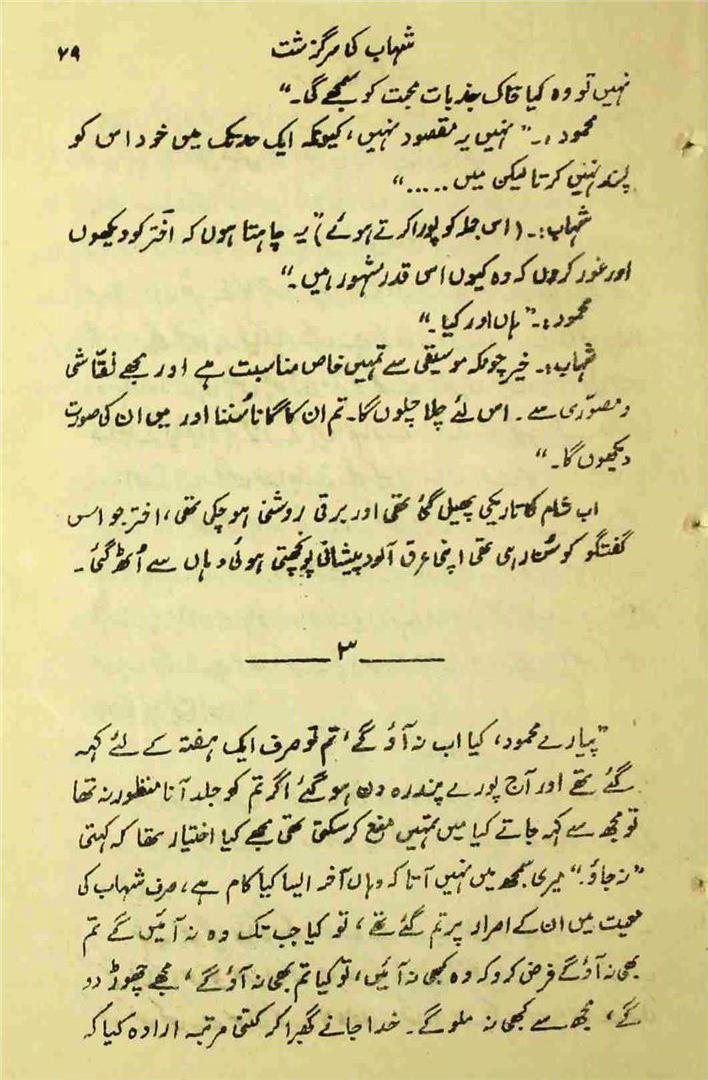 شہاب کا سرگزشت ۷۹
نہیں تو وہ کیا خاک جذبات محبت کو سمجھے گی۔"
محمود:۔ "نہیں یہ مقصود نہیں، کیونکہ ایک حد تک میں خود اس کو
پسند نہیں کرتا لیکن میں ....."
شہاب:۔ (اس جملہ کو پورا کرتے ہوئے) "یہ چاہتا ہوں کہ اختر کو دیکھوں
اور غور کروں کہ وہ کیوں اس قدر مشہور ہیں۔"
محمود:۔ "ہاں اور کیا۔"
شہاب:۔ خیر چونکہ موسیقی سے تمہیں خاص مناسبت ہے اور مجھے نقّاشی
و مصوّری سے۔ اس لئے چلا چلوں گا۔ تم ان کا گانا سُننا اور میں ان کی صورت
دیکھوں گا۔"
اب شام کا تاریکی پھیل گئی تھی اور برقی روشنی ہو چکی تھی، اختر جو اس
گفتگو کو سُن رہی تھی اپنی عرق آلود پیشانی پونچھتی ہوئی وہاں سے اُٹھ گئی۔
ــــــ ۳ ــــــ
"پیارے محمود، کیا اب نہ آؤ گے، تم تو صرف ایک ہفتہ کے لئے کہہ
گئے تھے اور آج پورے پندرہ دن ہو گئے اگر تم کو جلد آنا منظور نہ تھا
تو مجھ سے کہہ جاتے کیا میں تمہیں منع کر سکتی تھی مجھے کیا اختیار تھا کہ کہتی
"نہ جاؤ۔" میری سمجھ میں نہیں آتا کہ وہاں آخر ایسا کیا کام ہے، صرف شہاب کی
معیت میں ان کے اصرار پر تم گئے تھے، تو کیا جب تک وہ نہ آئیں گے تم
بھی نہ آؤ گے فرض کرو کہ وہ کبھی نہ آئیں، تو کیا تم بھی نہ آؤ گے، مجھے چھوڑ دو
گے، مجھ سے کبھی نہ ملو گے۔ خدا جانے گھبرا کر کتنی مرتبہ ارادہ کیا کہ